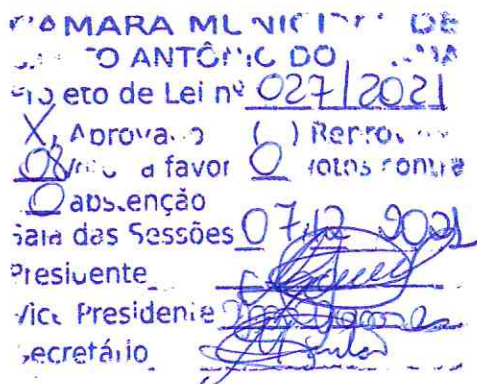 CÂMARA MUNICIPAL DE
ANTÔNIO DO
Projeto de Lei nº 027/2021
(X) Aprovado ( ) Reprovado
08 Votos a favor 0 votos contra
0 abstenção
Sala das Sessões 07/12 2021
Presidente
Vice Presidente
Secretário